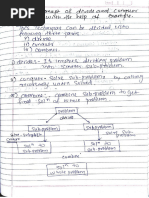 concept of divide and conquer
with the help of example.
techniques can be divided into
following three parts
1) divide
2) conquer
3) combine.
1) divide:- It involves dividing problem
into smaller sub-problem
2) conquer:- Solve sub-problem by calling
recursively until solved
3) combine:- combine sub-problem to get
final solⁿ of whole problem.
problem
divide
Sub-problem
Sub-problem
Sub-problem
Sub-problem
solⁿ to
Sub-problem
solⁿ to
Sub-problem
solⁿ to
whole problem